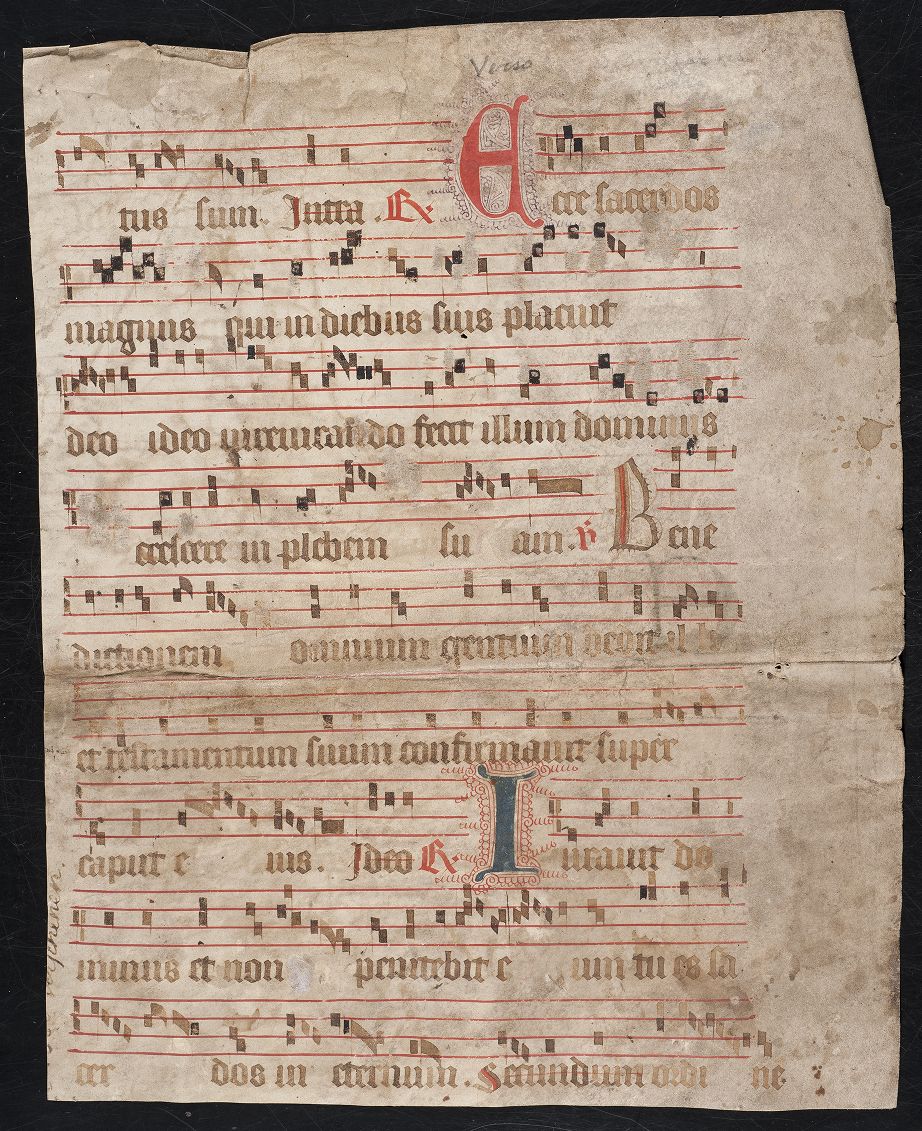 Verso
tus sum. Intra .R. Ecce sacerdos
magnus qui in diebus suis placuit
deo ideo iureiurando fecit illum dominus
crescere in plebem su am. V Bene
dictionem omnium gentium dedit il li
et testamentum suum confirmauit super
caput e ius. Ideo R. Iurauit do
minus et non penitebit e um tu es sa
cer dos in eternum . Secundum ordi ne